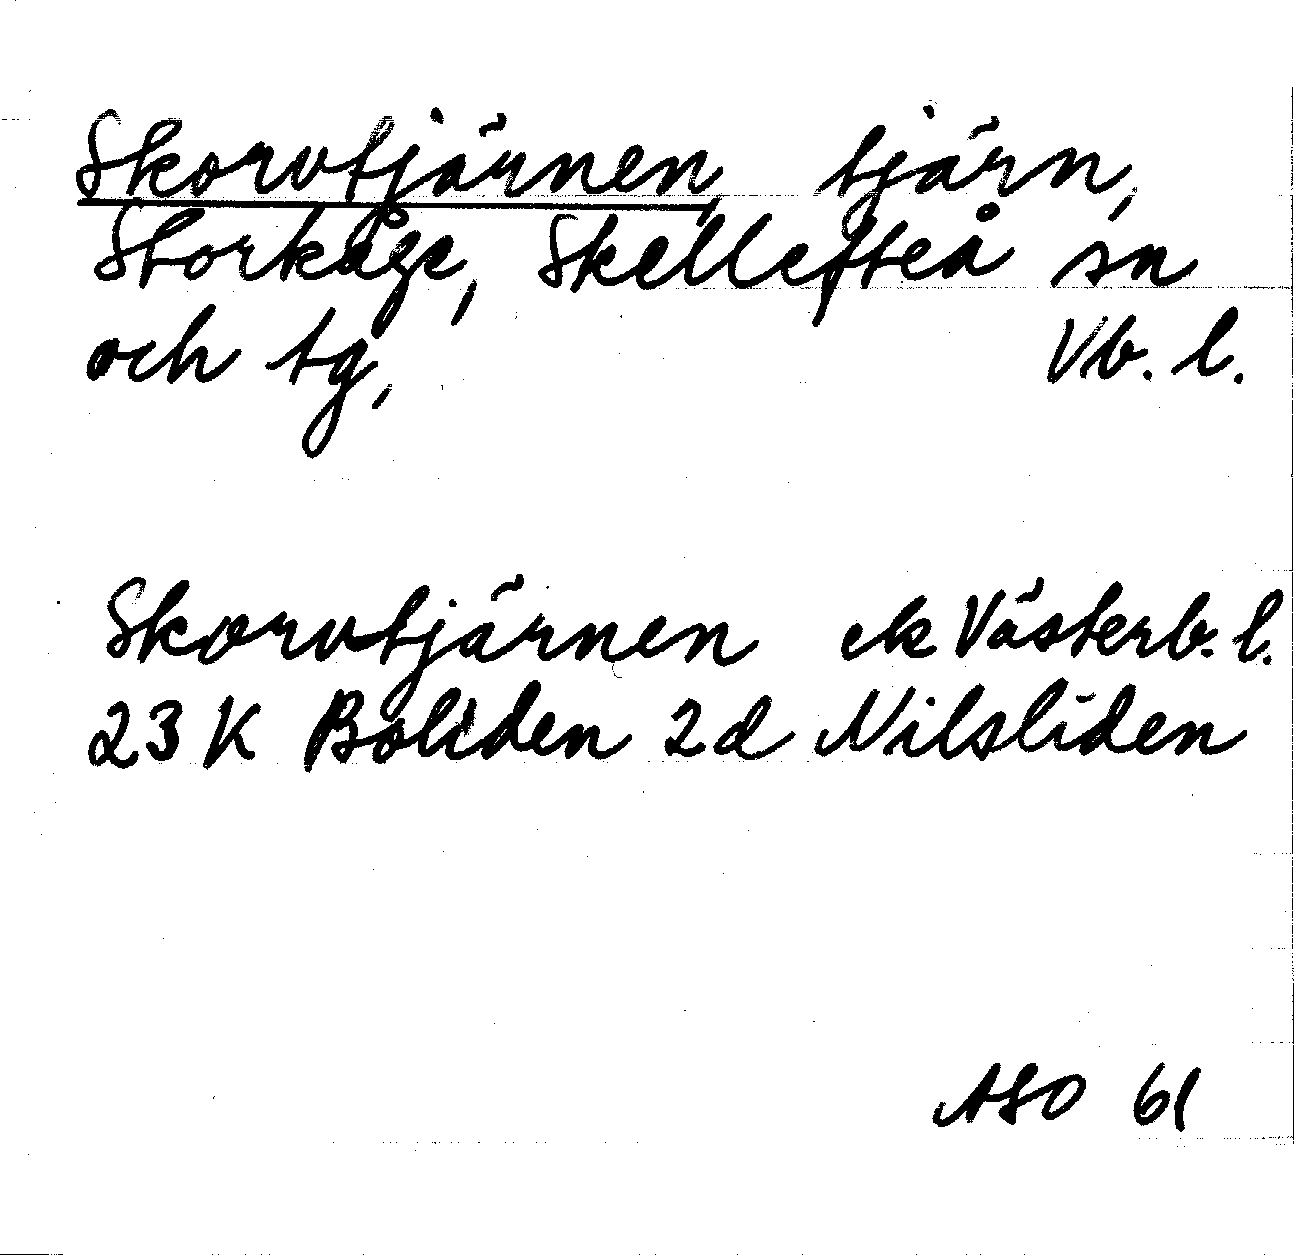 Skorvtjärnen, tjärn,
Storkåge, Skellefteå sn
och tg, Vb. l.
Skorvtjärnen ek Västerb. l.
23 K Boliden 2 d Nilsliden
ASO 61